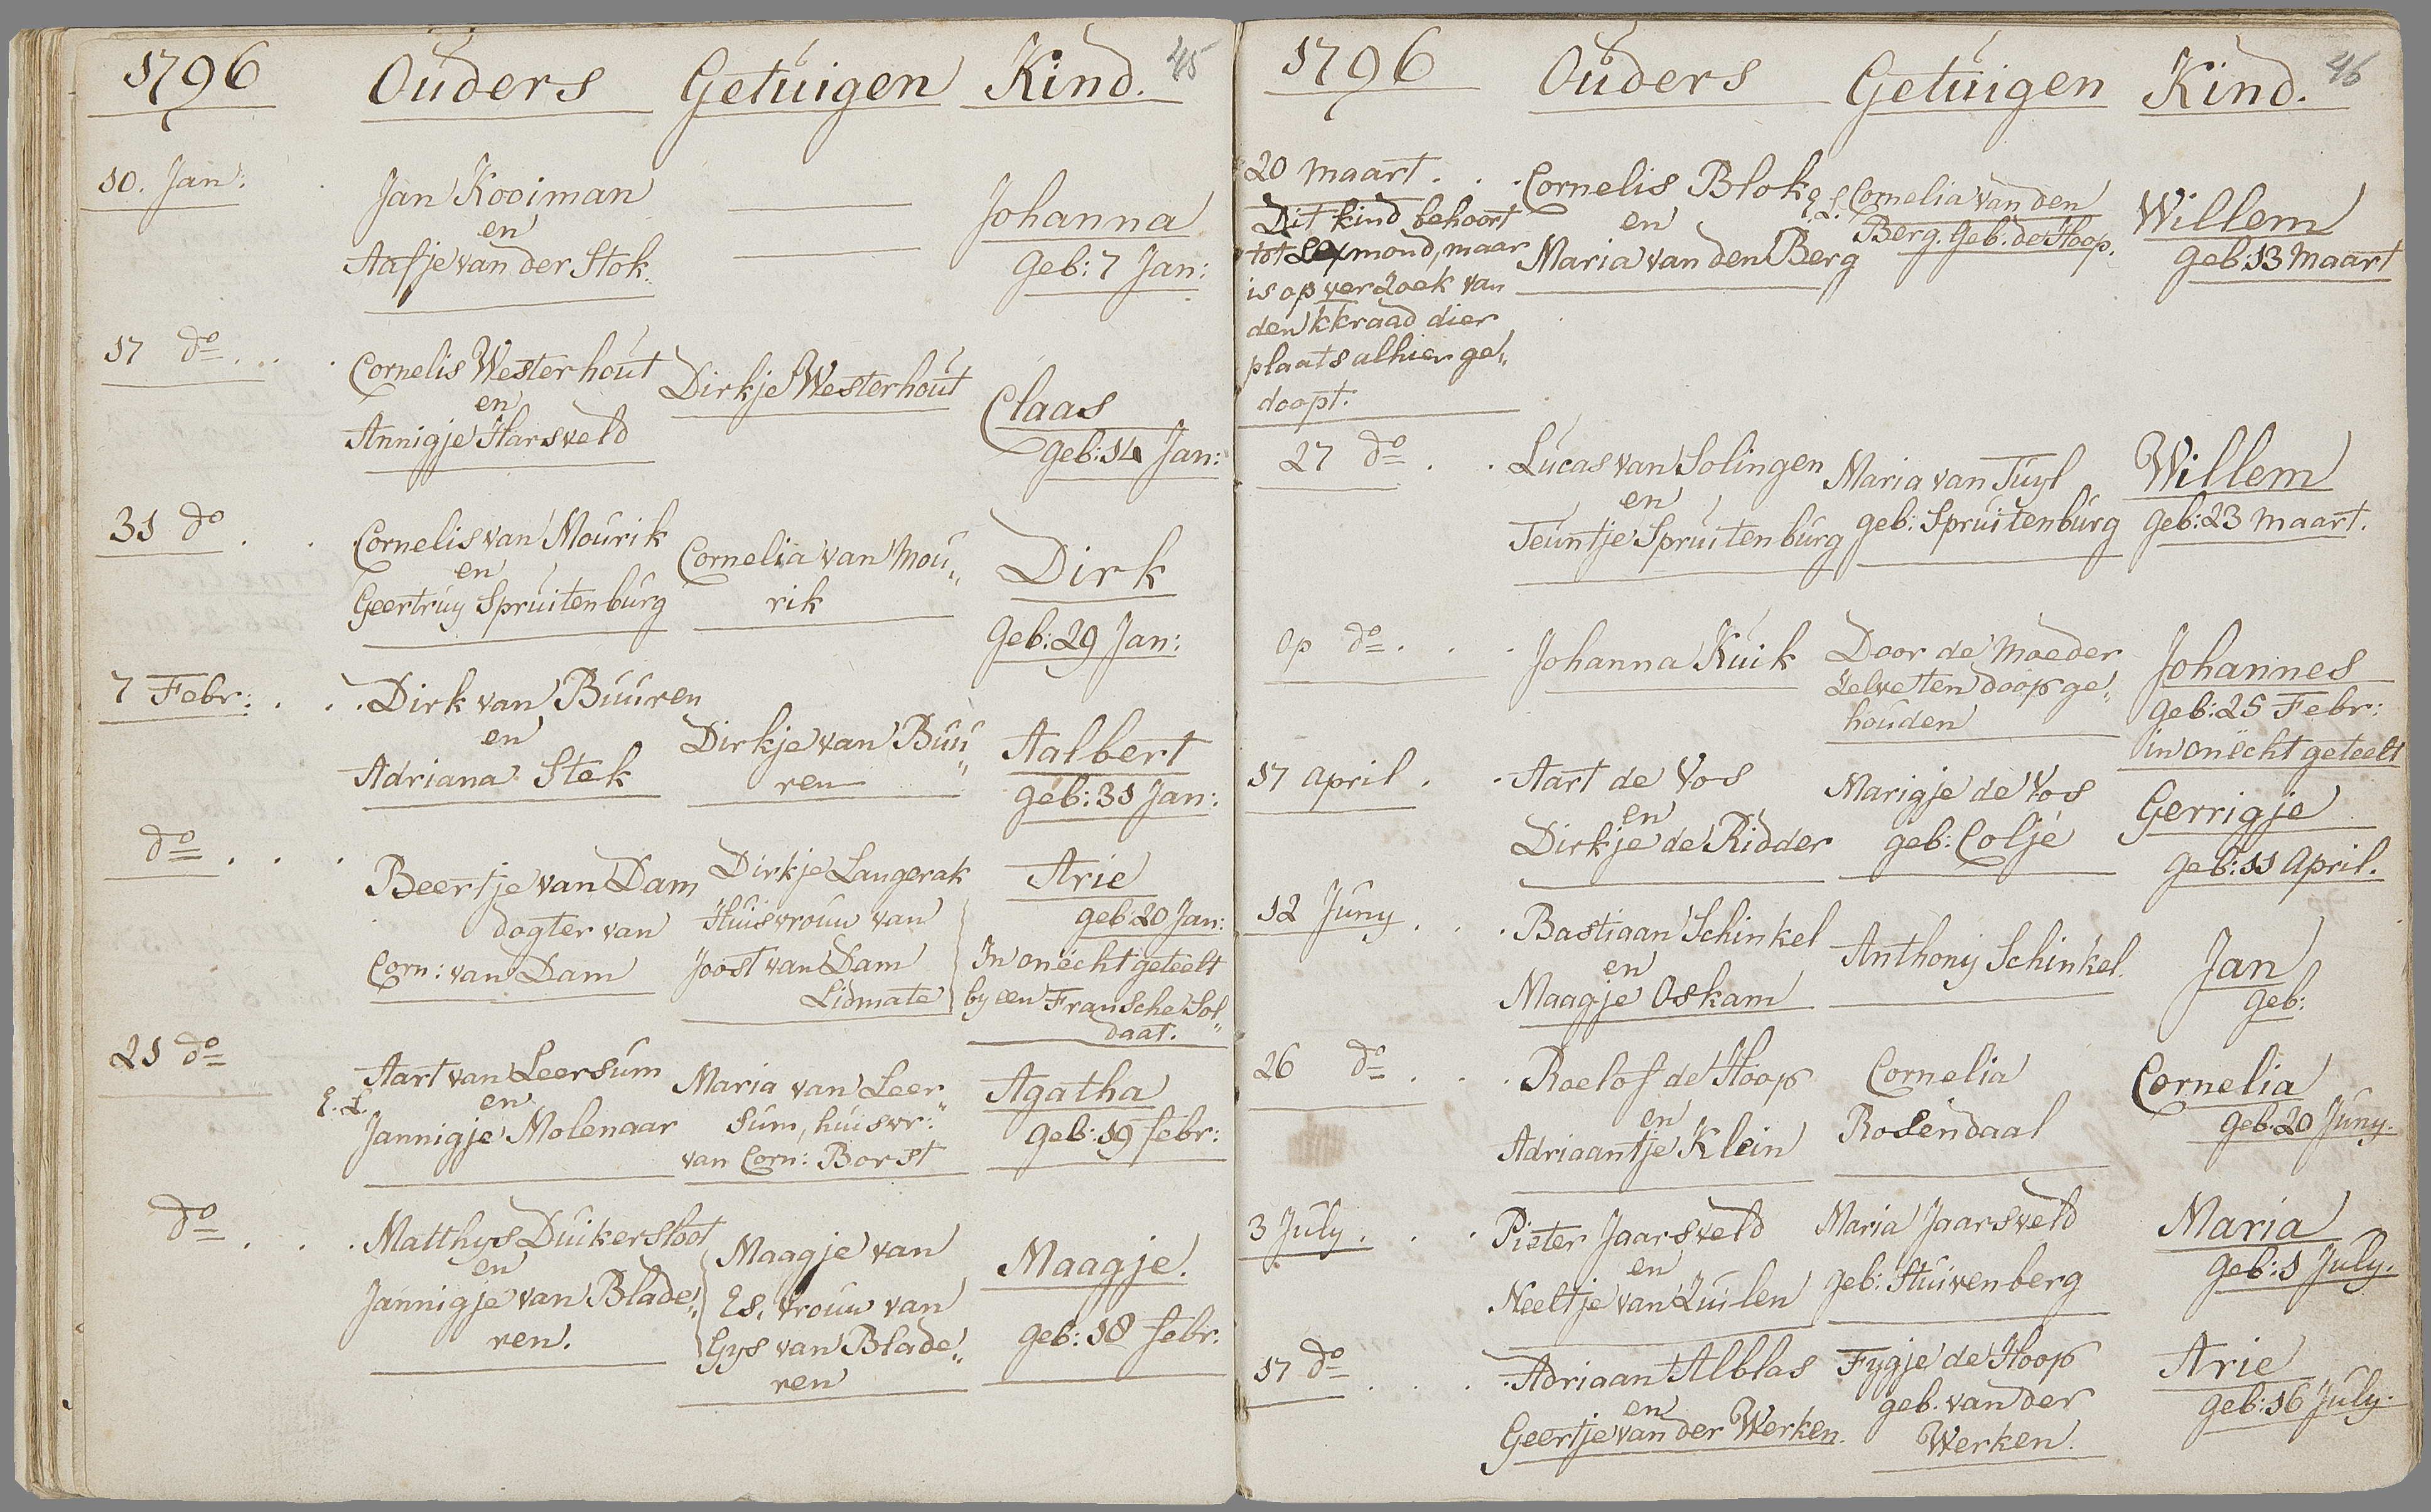 1796 Ouders Getuigen Kind. 45
10. Jan:
Jan Kooiman
en
Aafje van der Stok.
Johanna
geb: 7 Jan:
17 do . . .
Cornelis Westerhout
en
Annigje Harsveld
Dirkje Westerhout
Claas
geb: 14 Jan:
31 do . .
Cornelis van Mourik
en
Geertruy Spruitenburg
Cornelia van Mou„
rik
Dirk
geb: 29 Jan:
7 Febr: . . .
Dirk van Buuren
en
Adriana Stek
Dirkje van Buu„
ren
Aalbert
geb: 31 Jan:
do . . .
Beertje van Dam
dogter van
Corn: van Dam
Dirkje Langerak
Huisvrouw van
Joost van Dam
Lidmate
Arie
geb: 20 Jan:
In onëcht geteelt
by een Fransche Sol„
daat.
21 do
E. L.
Aart van Leersum
en
Jannigje Molenaar
Maria van Leer„
sum, huisvr:
van Corn: Borst
Agatha
geb: 19 febr:
do . . .
Matthys Duikersloot
en
Jannigje van Blade„
ren.
Maagje van
Es, vrouw van
Gys van Blade„
ren
Maagje.
geb: 18 febr:
1796 Ouders Getuigen Kind. 46
20 Maart. . .
Dit kind behoort
tot Lexmond, maar
is op verzoek van
den kkraad dier
plaats alhier ge„
doopt.
Cornelis Blok
en
Maria van den Berg
E. L. Cornelia van den
Berg. Geb. de Hoop.
Willem
geb: 13 Maart
27 do . .
Lucas van Solingen
en
Teuntje Spruitenburg
Maria van Tuyl
geb: Spruitenburg
Willem
geb: 23 Maart.
op do . . .
Johanna Kuik
Door de Moeder
zelve ten doop ge„
houden
Johannes
geb: 25 Febr:
in onëcht geteelt
17 April . .
Aart de Vos
en
Dirkje de Ridder
Marigje de Vos
geb: Coljé
Gerrigje
geb: 11 April.
12 Juny . . .
Bastiaan Schinkel
en
Maagje Oskam
Anthony Schinkel.
Jan
geb:
26 do . . .
Roelof de Hoop
en
Adriaantje Klein
Cornelia
Rosendaal
Cornelia
geb. 20 Juny.
3 July . . .
Pieter Jaarsveld
en
Neeltje van Zuilen
Maria Jaarsveld
geb: Stuivenberg
Maria
geb: 1 July.
17 do . . .
Adriaan Alblas
en
Geertje van der Werken.
Fygje de Hoop
geb. van der
Werken.
Arie
geb: 16 July.